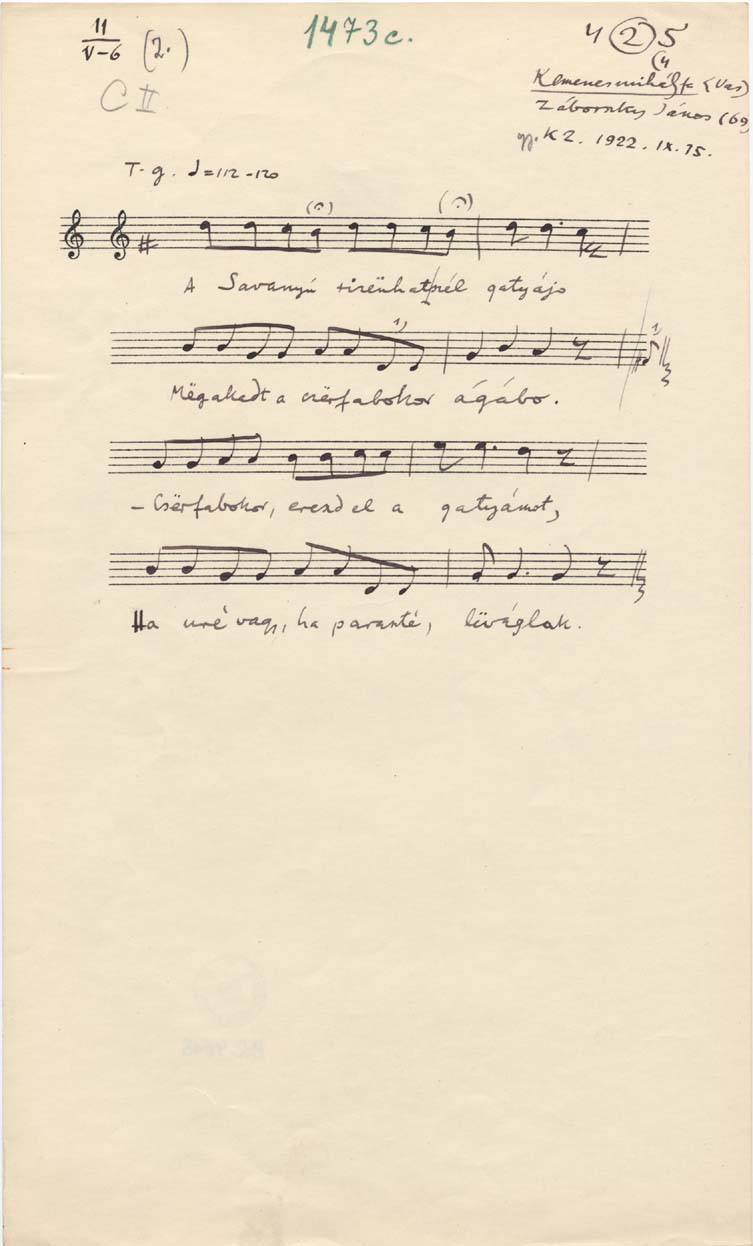 11
V–6 (2.)
C II
1473c.
4 (2) 5
(4
Kemenesmihályfa (Vas)
Záborszky János (69)
gy. K Z. 1922. IX. 15.
T. g. ♩=112–120
A Savanyú tizënhatprél gatyájo
Mëgakadt a csërfabokor ágábo.
– Csërfabokor, ereszd el a gatyámot,
Ha uré vagy, ha paraszté, lëváglak.